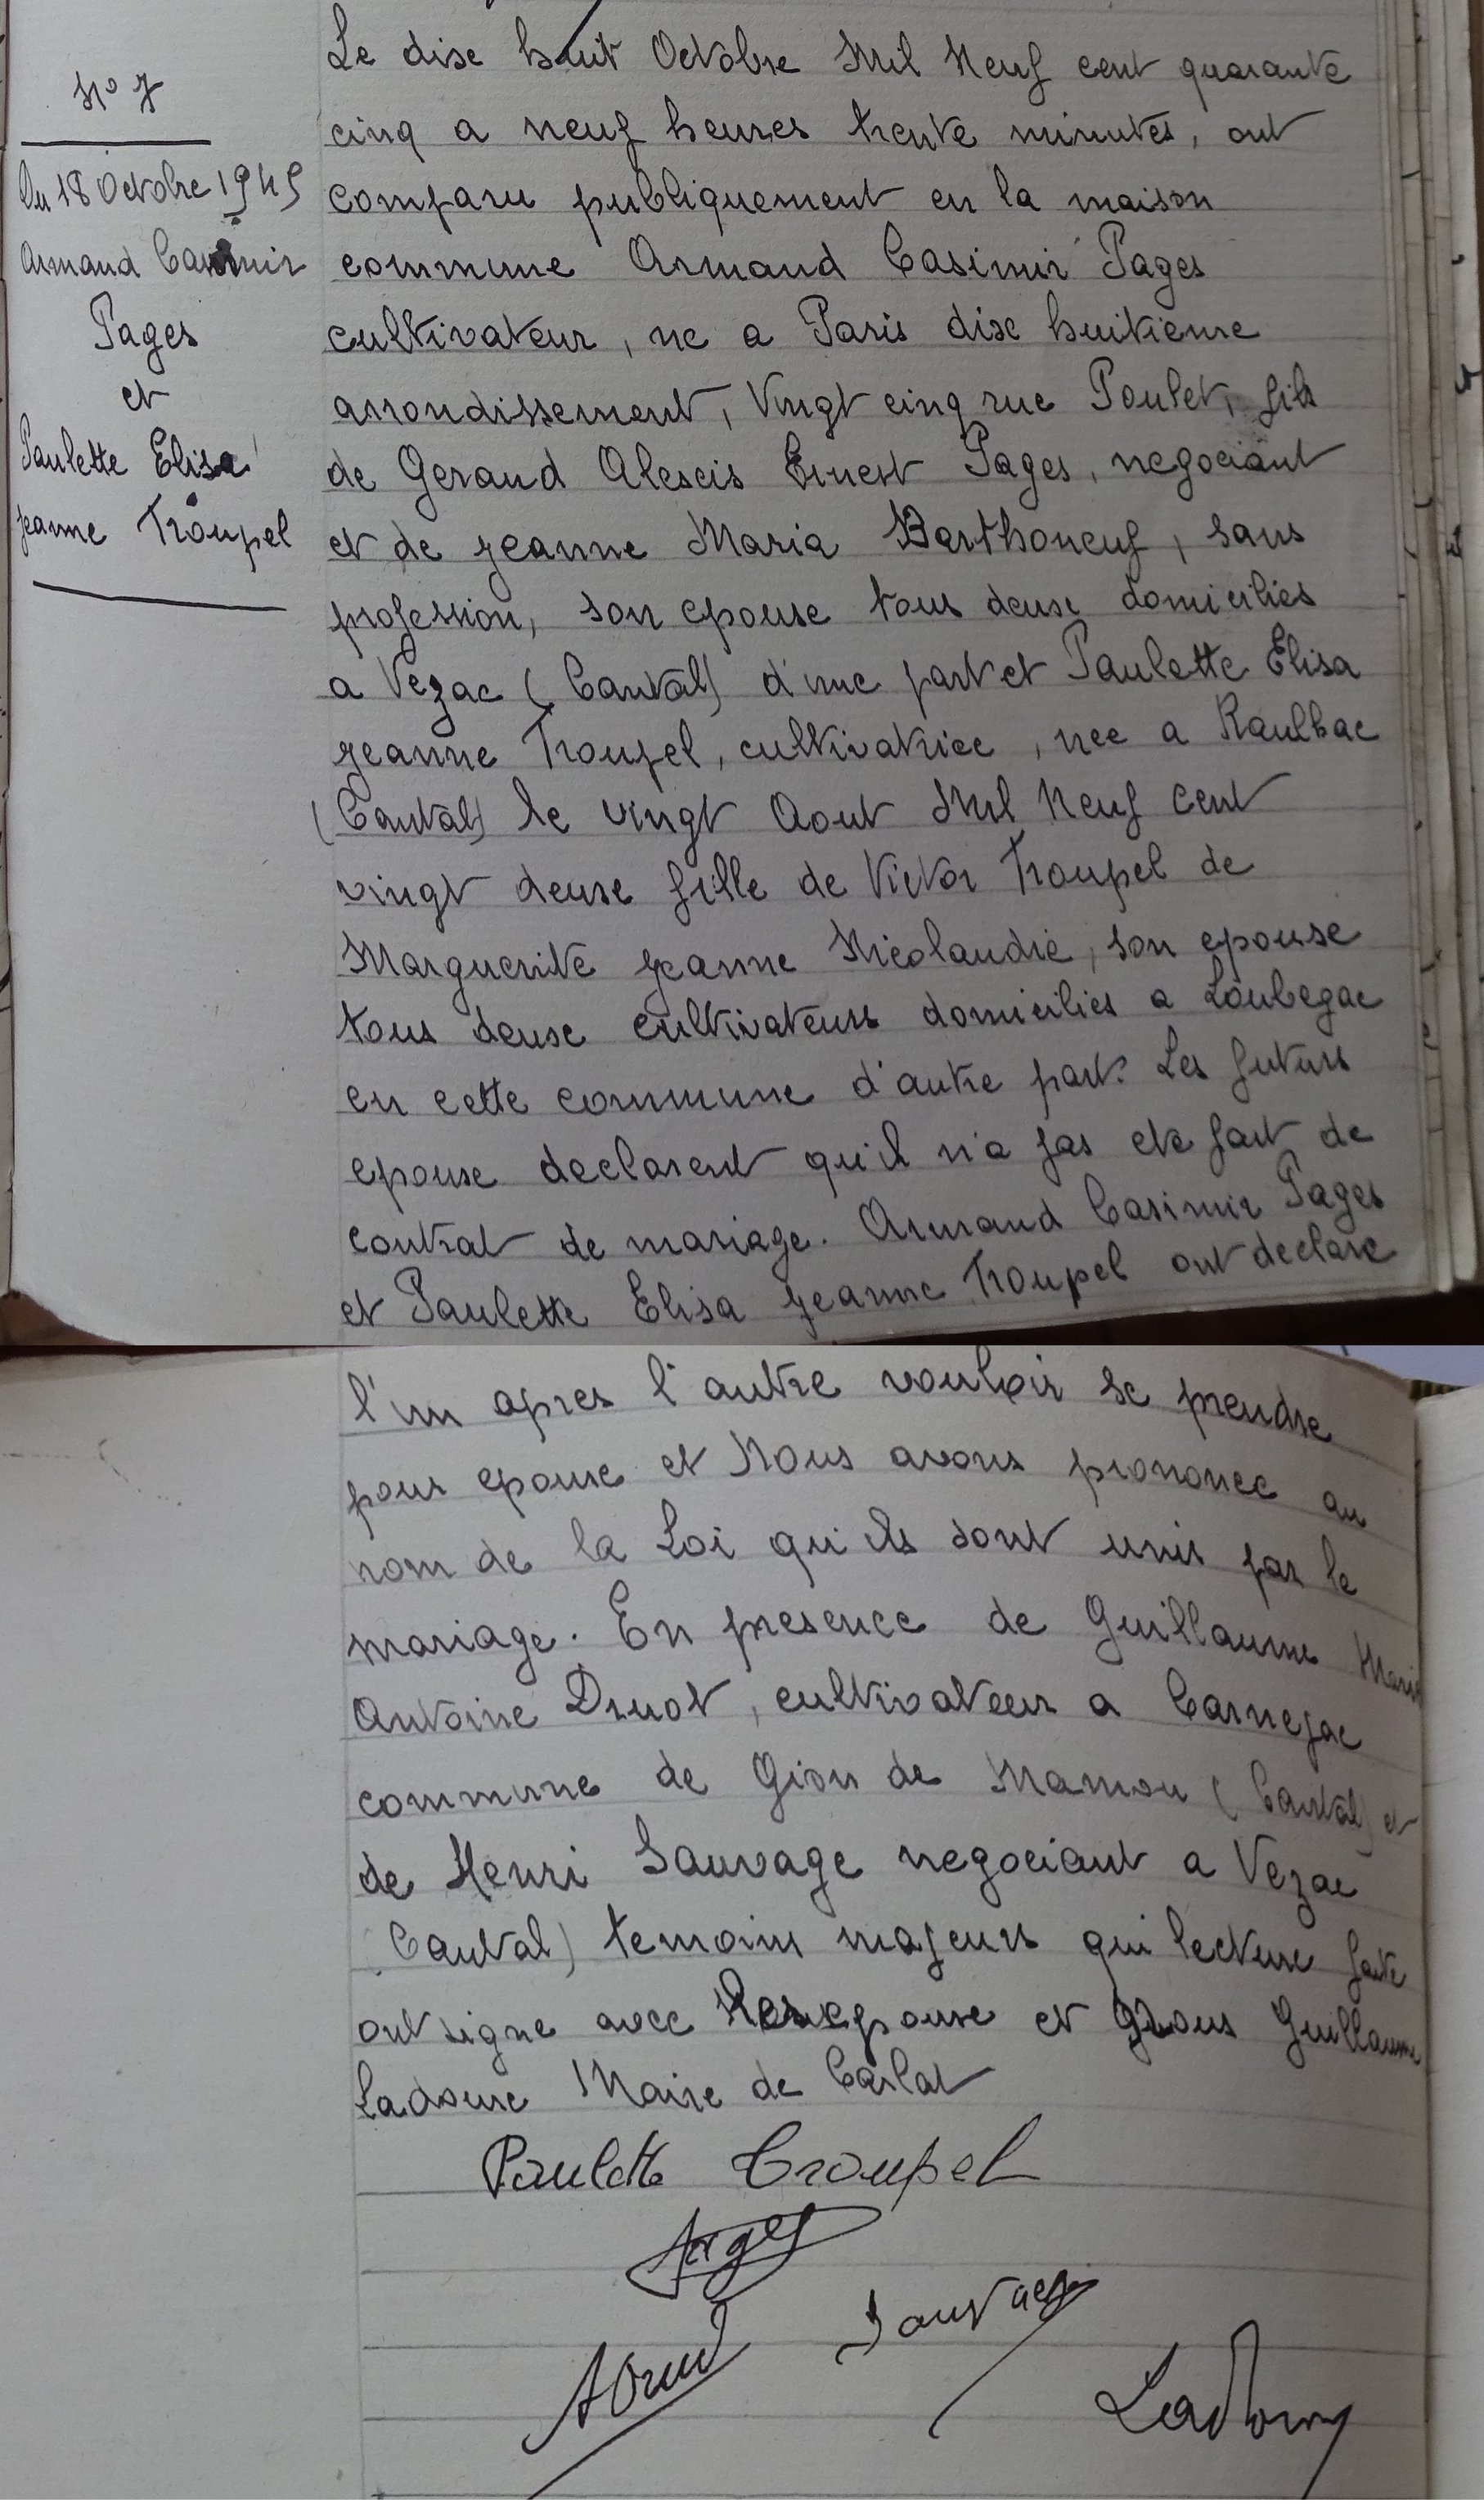 N° 7
Du 18 Octobre 1945
Armand Casimir
Pages
et
Paulette Elisa
Jeanne Troupel
Le dix huit Octobre Mil Neuf cent quarante
cinq a neuf heures trente minutes, ont
comparu publiquement en la maison
commune Armand Casimir Pages
cultivateur, ne a Paris dix huitieme
arrondissement, Vingt cinq rue Poulet, fils
de Geraud Alexis Ernest Pages, negociant
et de Jeanne Maria Barthoneuf, sans
profession, son epouse tous deux domicilies
a Vezac (Cantal) d'une part et Paulette Elisa
Jeanne Troupel, cultivatrice, nee a Raulhac
(Cantal) le vingt Aout Mil Neuf cent
vingt deux fille de Victor Troupel de
Marguerite Jeanne Nicolaudie, son epouse
tous deux cultivateurs domicilies a Loubegac
en cette commune d'autre part. Les futurs
epoux declarent qu'il n'a pas ete fait de
contrat de mariage. Armand Casimir Pages
et Paulette Elisa Jeanne Troupel ont declare
l'un apres l'autre vouloir se prendre
pour epoux et Nous avons prononce au
nom de la Loi qu'ils sont unis par le
mariage. En presence de Guillaume Marie
Antoine Druot, cultivateur a Carnejac
commune de Giou de Mamou (Cantal) et
de Henri Sauvage negociant a Vezac
Cantal) temoins majeurs qui lecture faite
ont signe avec les epoux et Nous Guillaume
Ladoux Maire de Carlat
Paulette Troupel
Pages
Sauvage
Ladoux